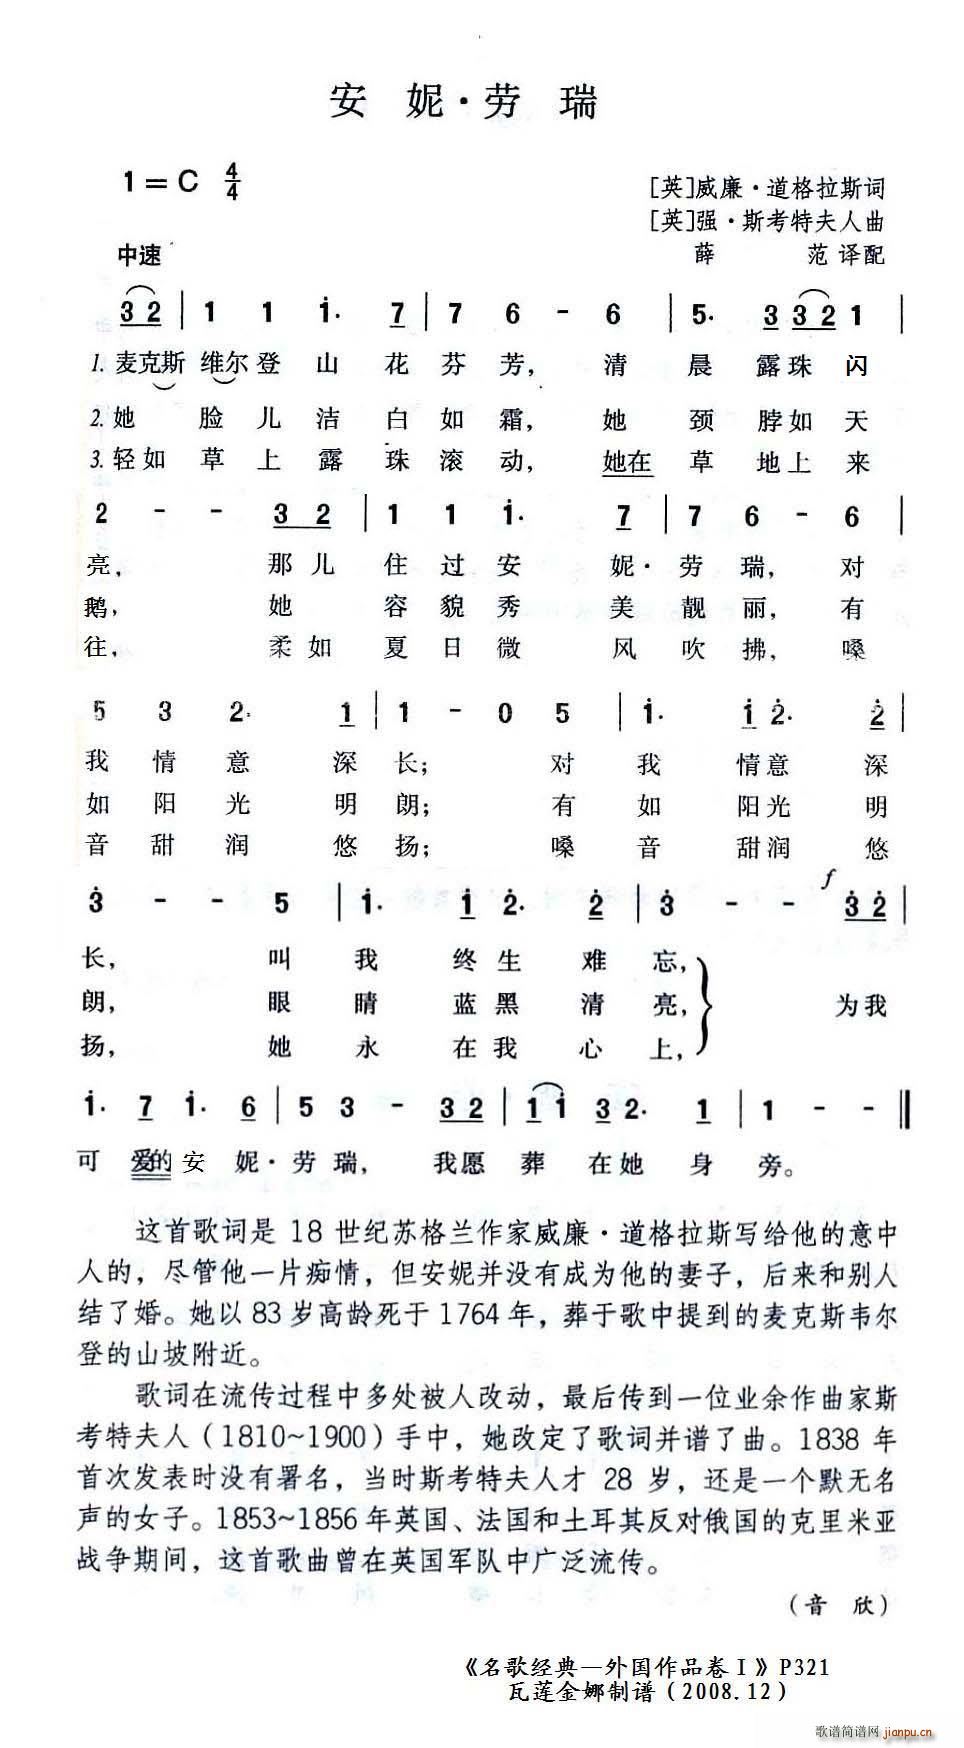 安 妮·劳 瑞
1=C 4/4
[英]威廉·道格拉斯词
[英]强·斯考特夫人曲
中速
薛 范 译配
3 2 | 1 1 i· 7 | 7 6 - 6 | 5· 3 3 2 1 |
1. 麦克斯 维尔 登 山 花 芬 芳, 清 晨 露 珠 闪
2. 她 脸 儿 洁 白 如 霜, 她 颈 脖 如 天
3. 轻如 草 上 露 珠 滚 动, 她在 草 地 上 来
2 - - 3 2 | 1 1 i· 7 | 7 6 - 6 |
亮, 那 儿 住 过 安 妮·劳 瑞, 对
鹅, 她 容 貌 秀 美 靓 丽, 有
往, 柔 如 夏 日 微 风 吹 拂, 嗓
5 3 2· 1 | 1 - 0 5 | i· i 2̇· 2̇ |
我 情 意 深 长; 对 我 情 意 深
如 阳 光 明 朗; 有 如 阳 光 明
音 甜 润 悠 扬; 嗓 音 甜 润 悠
f
3̇ - - 5 | i· i 2̇· 2̇ | 3̇ - - 3̇ 2̇ |
长, 叫 我 终 生 难 忘,
朗, 眼 睛 蓝 黑 清 亮, 为我
扬, 她 永 在 我 心 上,
i· 7 i· 6 | 5 3 - 3 2 | 1 i 3 2· 1 | 1 - - ||
可 爱的 安 妮·劳 瑞, 我 愿 葬 在 她 身 旁。
这首歌词是 18 世纪苏格兰作家威廉·道格拉斯写给他的意中
人的，尽管他一片痴情，但安妮并没有成为他的妻子，后来和别人
结了婚。她以 83 岁高龄死于 1764 年，葬于歌中提到的麦克斯韦尔
登的山坡附近。
歌词在流传过程中多处被人改动，最后传到一位业余作曲家斯
考特夫人（1810~1900）手中，她改定了歌词并谱了曲。1838 年
首次发表时没有署名，当时斯考特夫人才 28 岁，还是一个默无名
声的女子。1853~1856 年英国、法国和土耳其反对俄国的克里米亚
战争期间，这首歌曲曾在英国军队中广泛流传。
（音 欣）
《名歌经典—外国作品卷Ⅰ》P321
瓦莲金娜制谱（2008.12）
歌谱简谱网 jianpu.cn